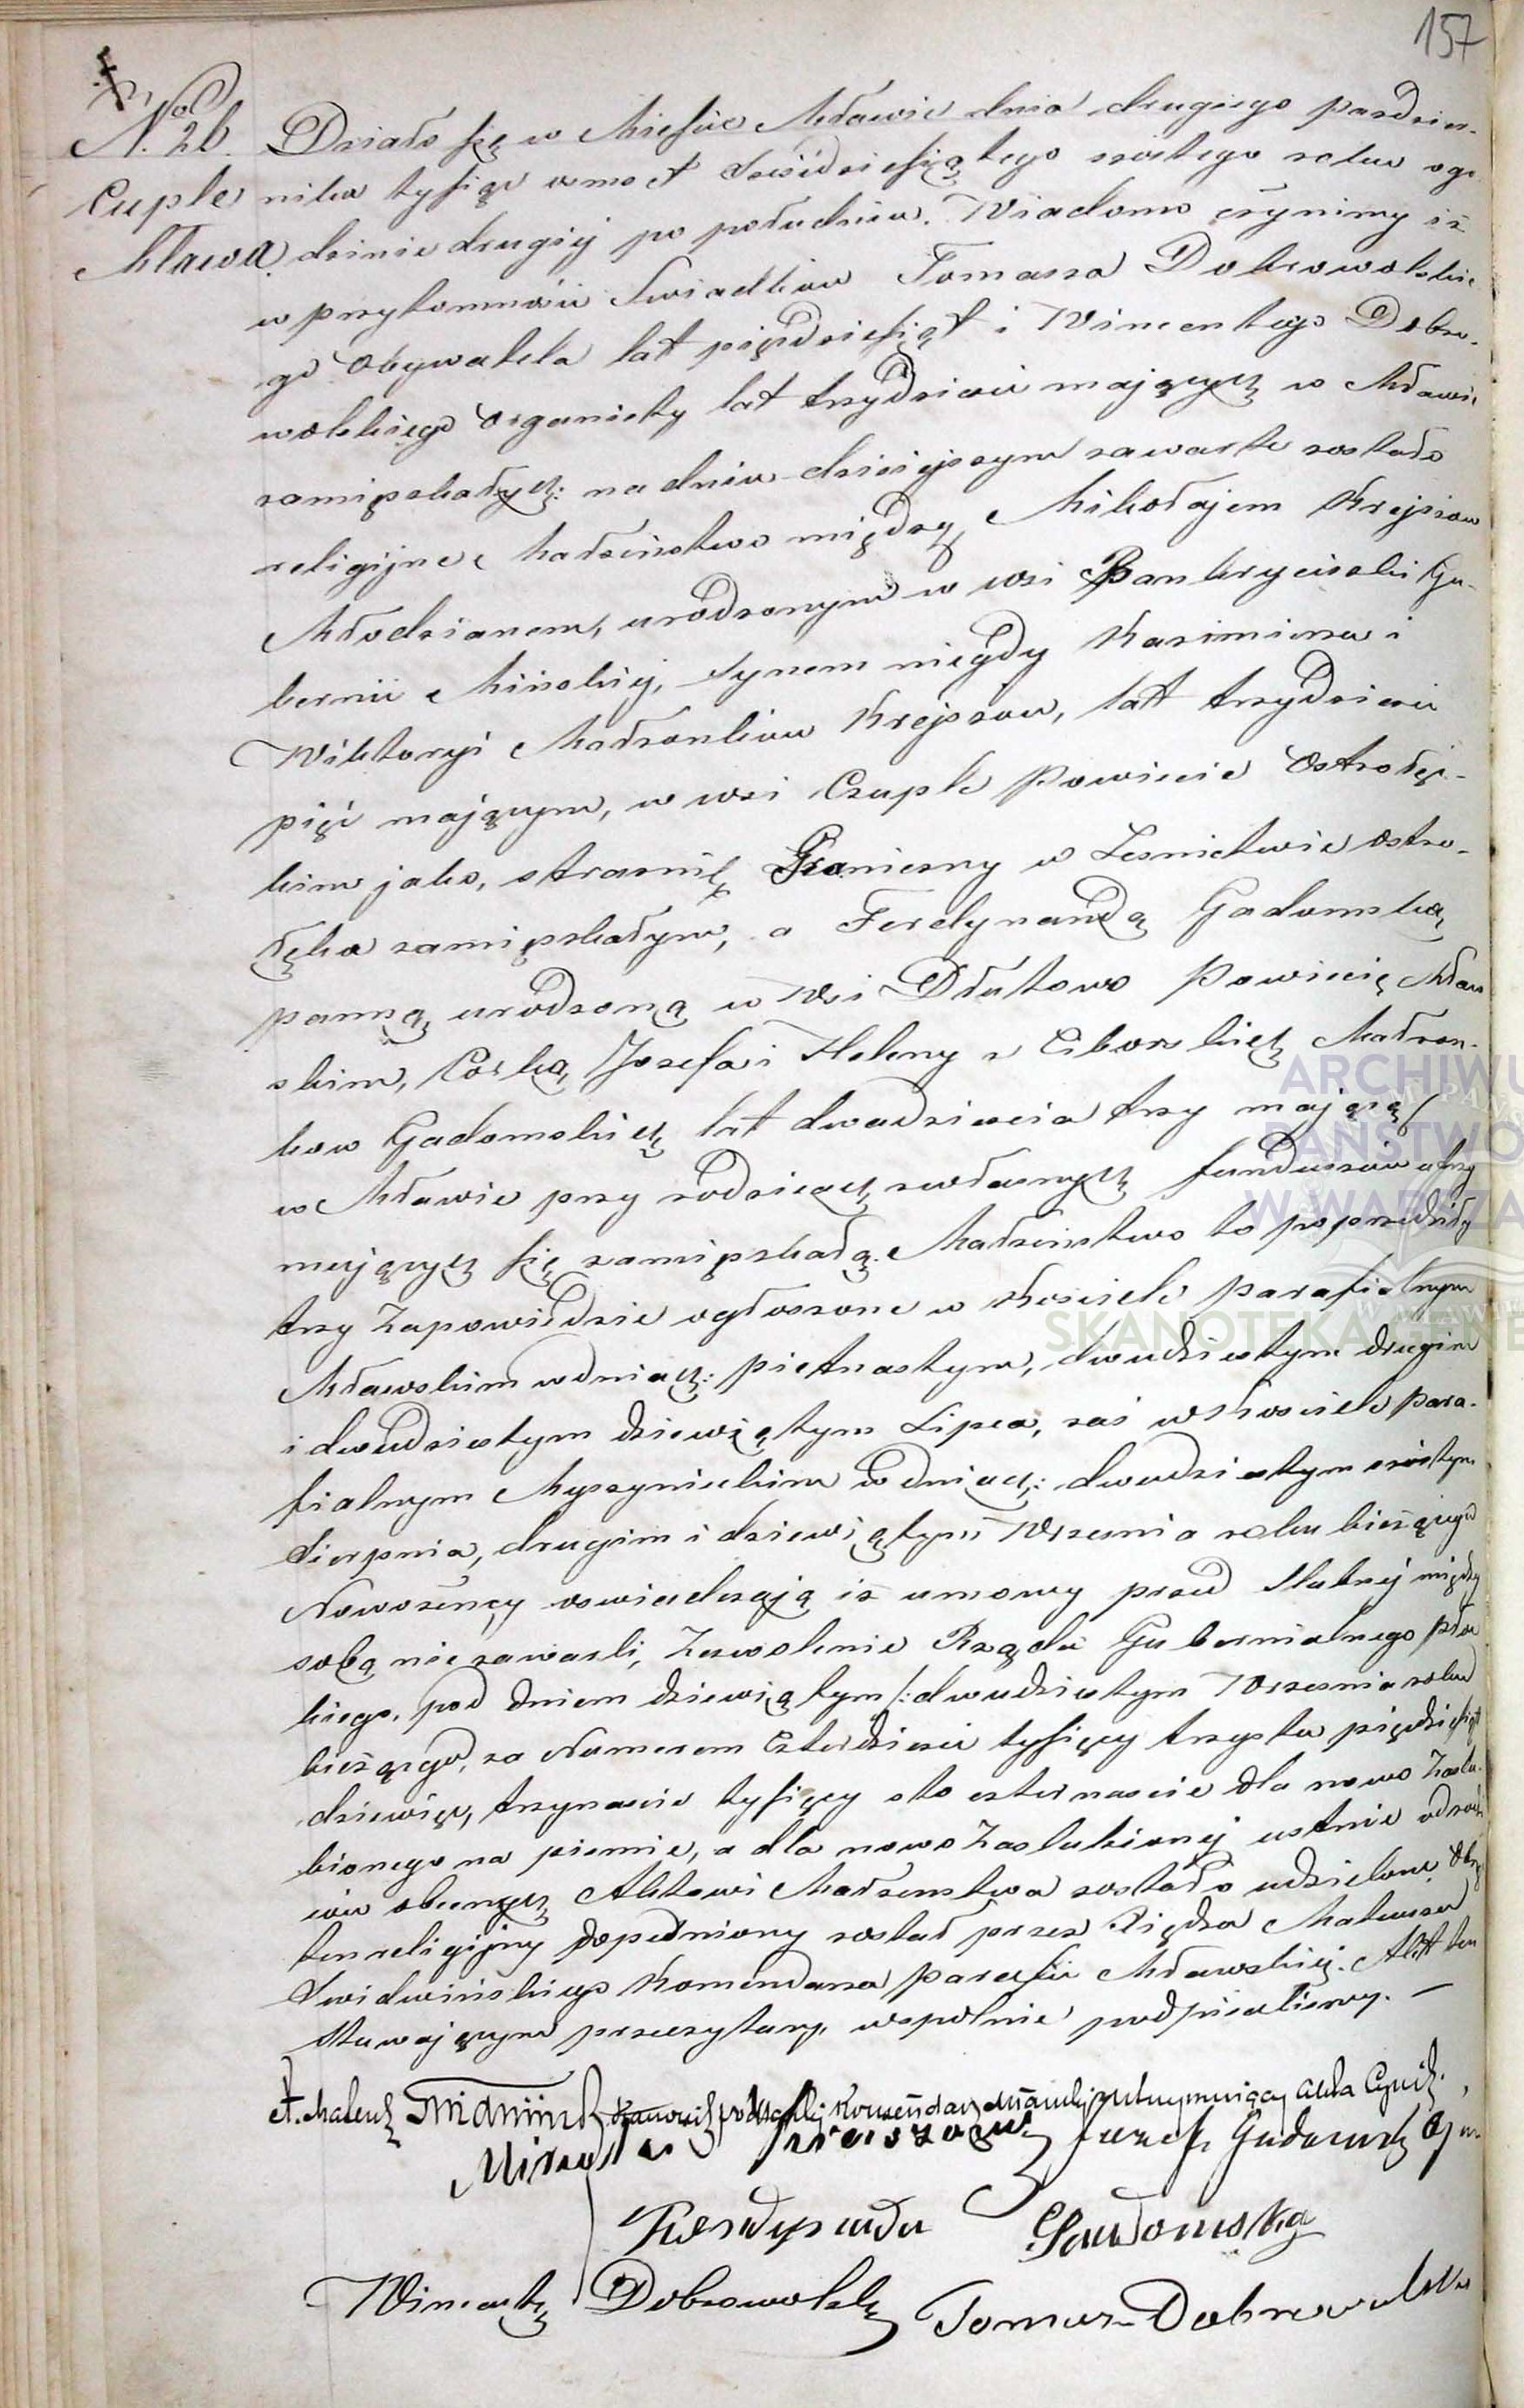 157
N. 26. Działo się w Mieście Mławie dnia drugiego paździer-
Czuple nika tysiąc ośmset sześćdziesiątego szóstego roku ogo
Mława dzinie drugiéj po południu. Wiadomo czynimy iż
w przytomności Swiadków Tomasza Dobrowolskie
go Obywatela lat pięćdziesiąt i Wincentego Dobro-
wolskiego Organisty lat trzydzieści mających w Mławie
zamięszkałych: na dniu dzisiejszym zawarte zostało
religijne Małżeństwo między Mikołajem Krejszow
Młodzianem, urodzonym w wsi Gu-
bernii Mińskiéj, synem niegdy Kazimierza i
Wiktoryi Małżonków Krejszow, lat trzydzieści
pięć mającym, w wsi Czuple Powiecie Ostrołęc-
kim jako, strażnik Graniczny w Leśnictwie Ostro-
łęka zamięszkałym, a Ferdynandą Gadomską
panną urodzoną w Wsi Dłutowo Powiecie Mław
skim, Córką Józefa i Heleny z Ciborskich Małżon-
ków Gadomskich lat dwadzieścia trzy mającą
w Mławie przy rodzicach z własnych funduszów utrzy
mujących się zamięszkałą. Małżeństwo to poprzedziły
trzy Zapowiedzie ogłoszone w Kościele parafialnym
Mławskim w dniach: piętnastym, dwudziestym drugim
i dwudziestym dziewiątym Lipca, zaś w Kościele para-
fialnym Myszynieckim w dniach: dwudziestym szóstym
Sierpnia, drugim i dziewiątym Września roku bieżącego
Nowożeńcy oswiadczają iż umowy przed ślubnéj między
sobą nie zawarli, Zezwolenie Rządu Gubernialnego płoc
kiego, pod dniem dziewiątym /: dwudziestym Września roku
bieżącego, za Numerem Czterdzieści tysięcy trzysta pięćdziesiąt
dziewięć, trzynaście tysięcy sto czternaście dla nowo Zaślu-
bionego na piśmie, a dla nowo Zaślubionéj ustnie od rodzi
ców obecnych Aktowi Małżeństwa zostało udzielone. Obrzęd
ten religijny dopełniony został przez Xiędza Mateusza
Swidwińskiego Komendarza parafii Mławskiéj. Akt ten
Stawającym przeczytany, wspólnie podpisaliśmy. —
X. Mateusz Komendarz Mławski utrzymujący Akta Cywil.
Józef Gadomski
Ferdynanda Gadomska
Wincenty Dobrowolski Tomasz Dobrowolski
ARCHIWU
PAŃSTWO
W WARSZA
SKANOTEKA GENE